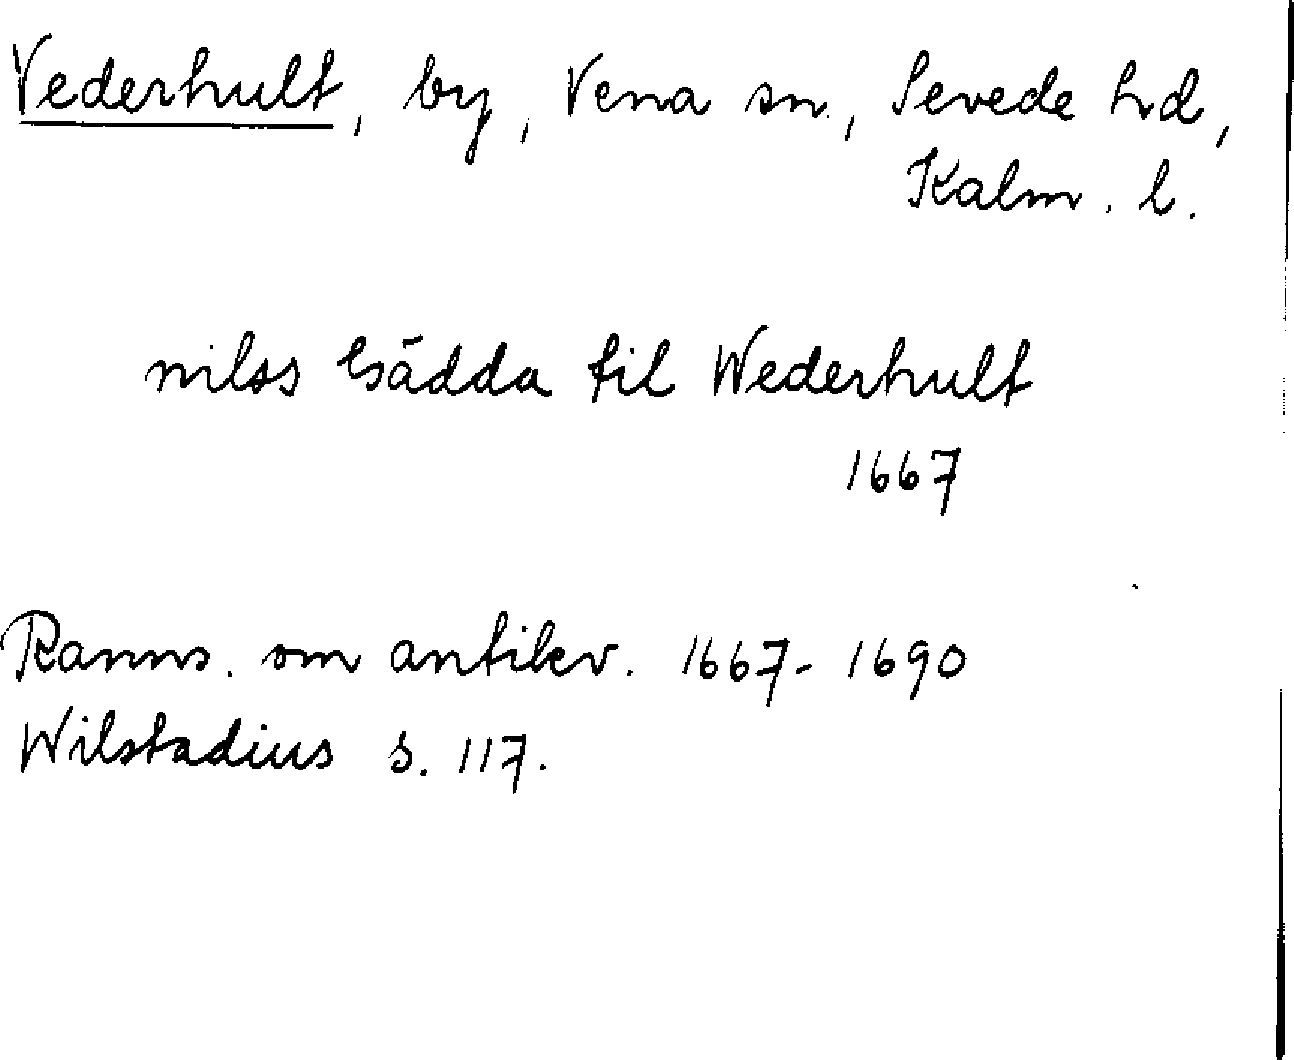 Vederhult, by, Vena sn., Sevede hd,
Kalm. l.
nilss Gädda til Wederhult
1667
Ranns. om antikv. 1667-1690
Wilstadius s. 117.